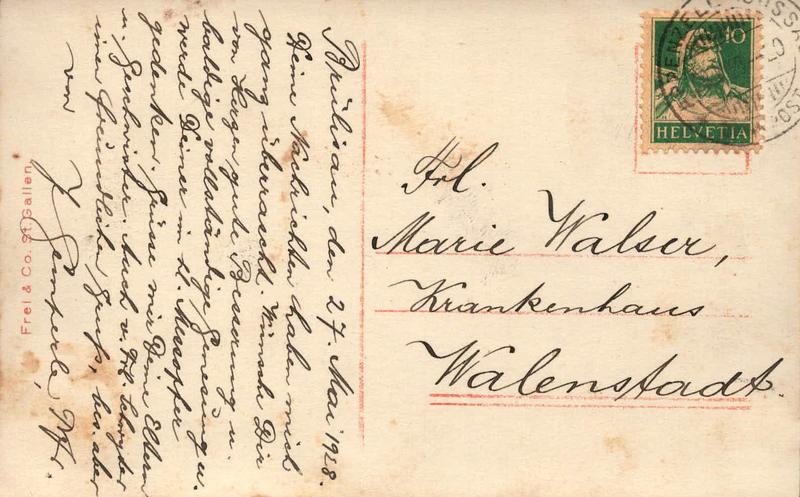 Brülisau, den 27. Mai 1928.
Deine Nachrichten haben mich
ganz überrascht. Wünsche Dir
von Herzen gute Besserung u.
baldige vollständige Genesung u.
werde Deiner im hl. Messopfer
gedenken. Grüsse mir Deine Eltern
u. Geschwister. Auch v. Frl.
einen freundlichen Gruss, bes. aber
von
J. Gemperle, Pfr.
Frei & Co. St. Gallen
10
HELVETIA
Frl.
Marie Walser,
Krankenhaus
Walenstadt.